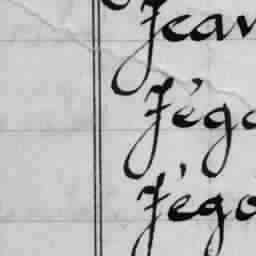 Jean
Jégo
Jégo